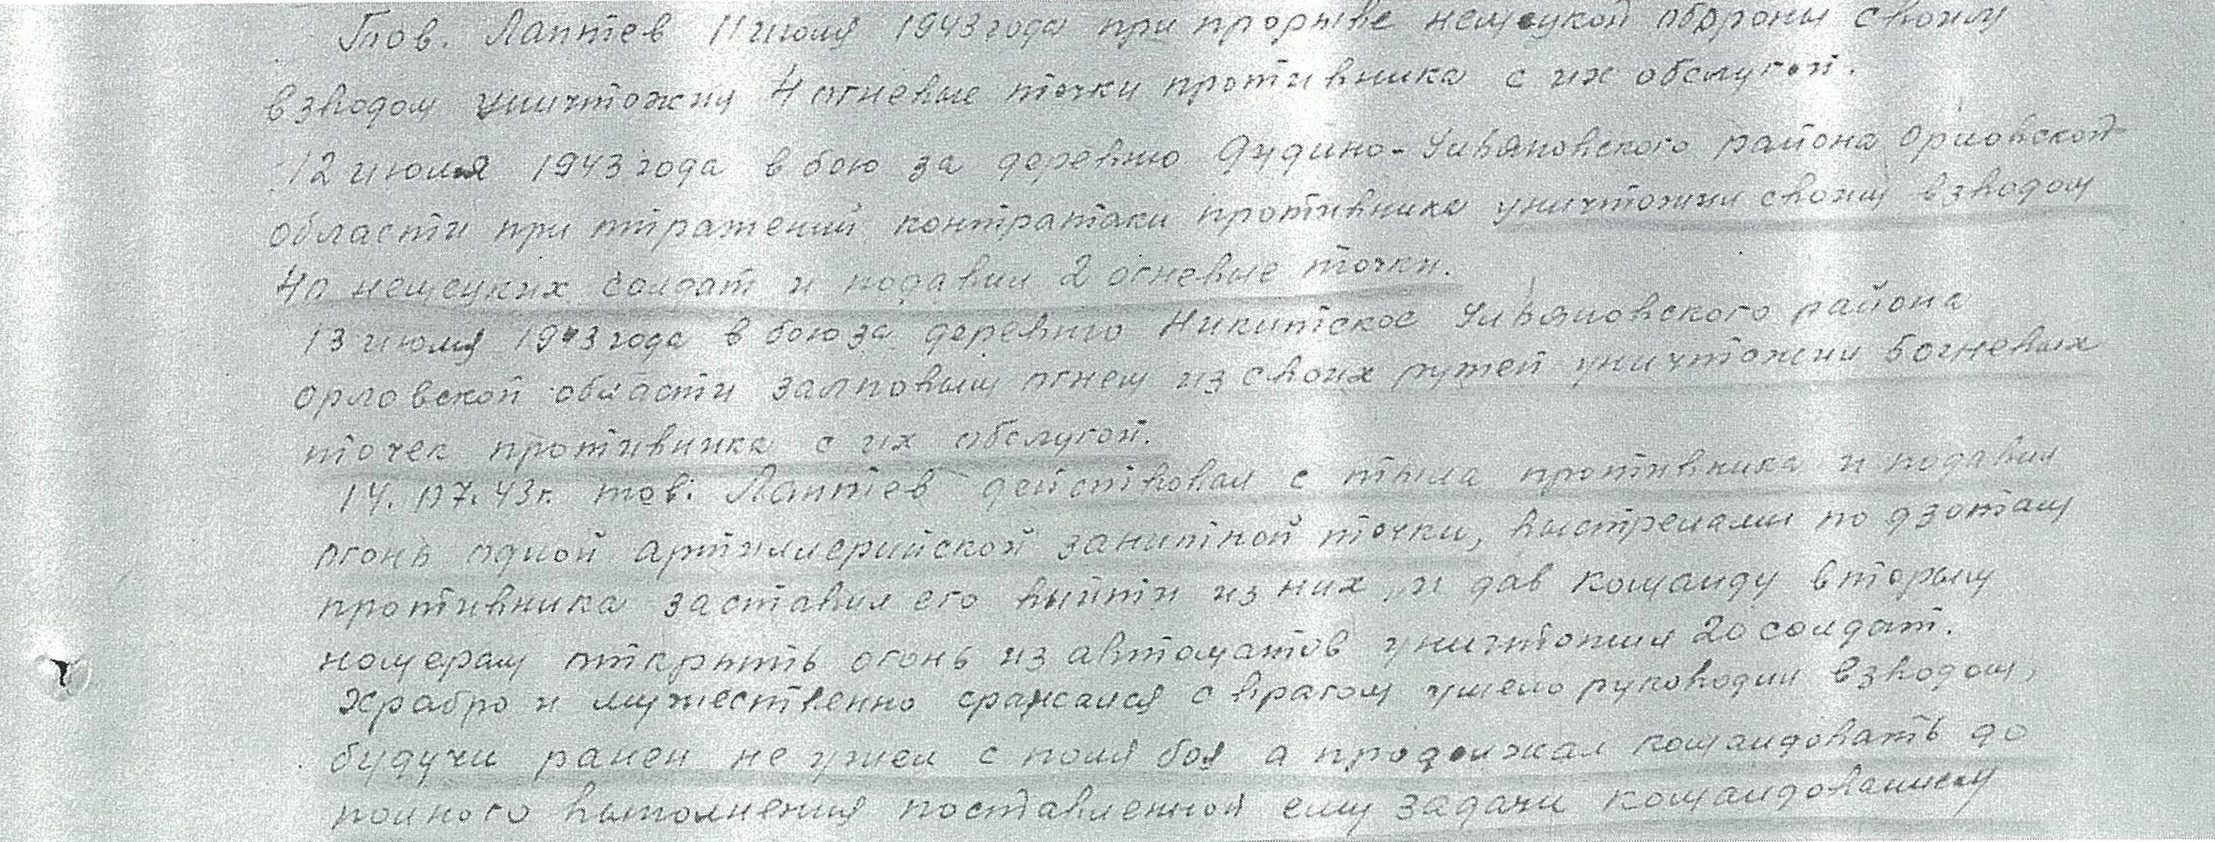 Тов. Лаптев 11 июля 1943 года при прорыве немецкой обороны своим
взводом уничтожил 4 огневые точки противника с их обслугой.
12 июля 1943 года в бою за деревню Дудино-Ульяновского района Орловской
области при отражений контратаки противника уничтожил своим взводом
40 немецких солдат и подавил 2 огневые точки.
13 июля 1943 года в бою за деревню Никитское Ульяновского района
Орловской области залповым огнем из своих ружей уничтожил 6 огневых
точек противника с их обслугой.
14.07.43г. тов. Лаптев действовал с тыла противника и подавил
огонь одной артиллерийской зенитной точки, выстрелами по дзотам
противника заставил его выйти из них, и дав команду вторым
номерам открыть огонь из автоматов уничтожил 20 солдат.
Храбро и мужественно сражался с врагом умело руководил взводом,
будучи ранен не ушел с поля боя а продолжал командовать до
полного выполнения поставленной ему задачи командованием